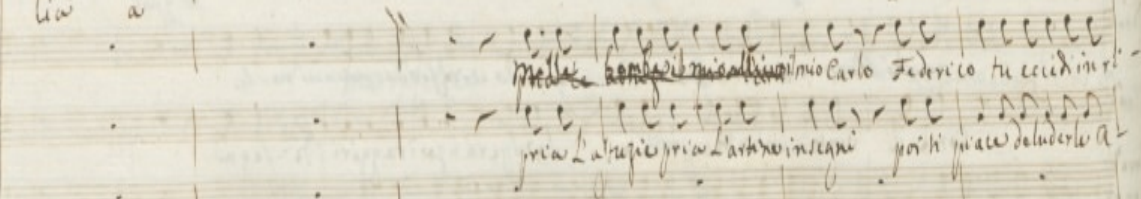 lia a
nella tomba il mio Carlo Federico tu eccidi in
pria L'astuzie pria L'arti ne insegni poi ti piace deluderle A